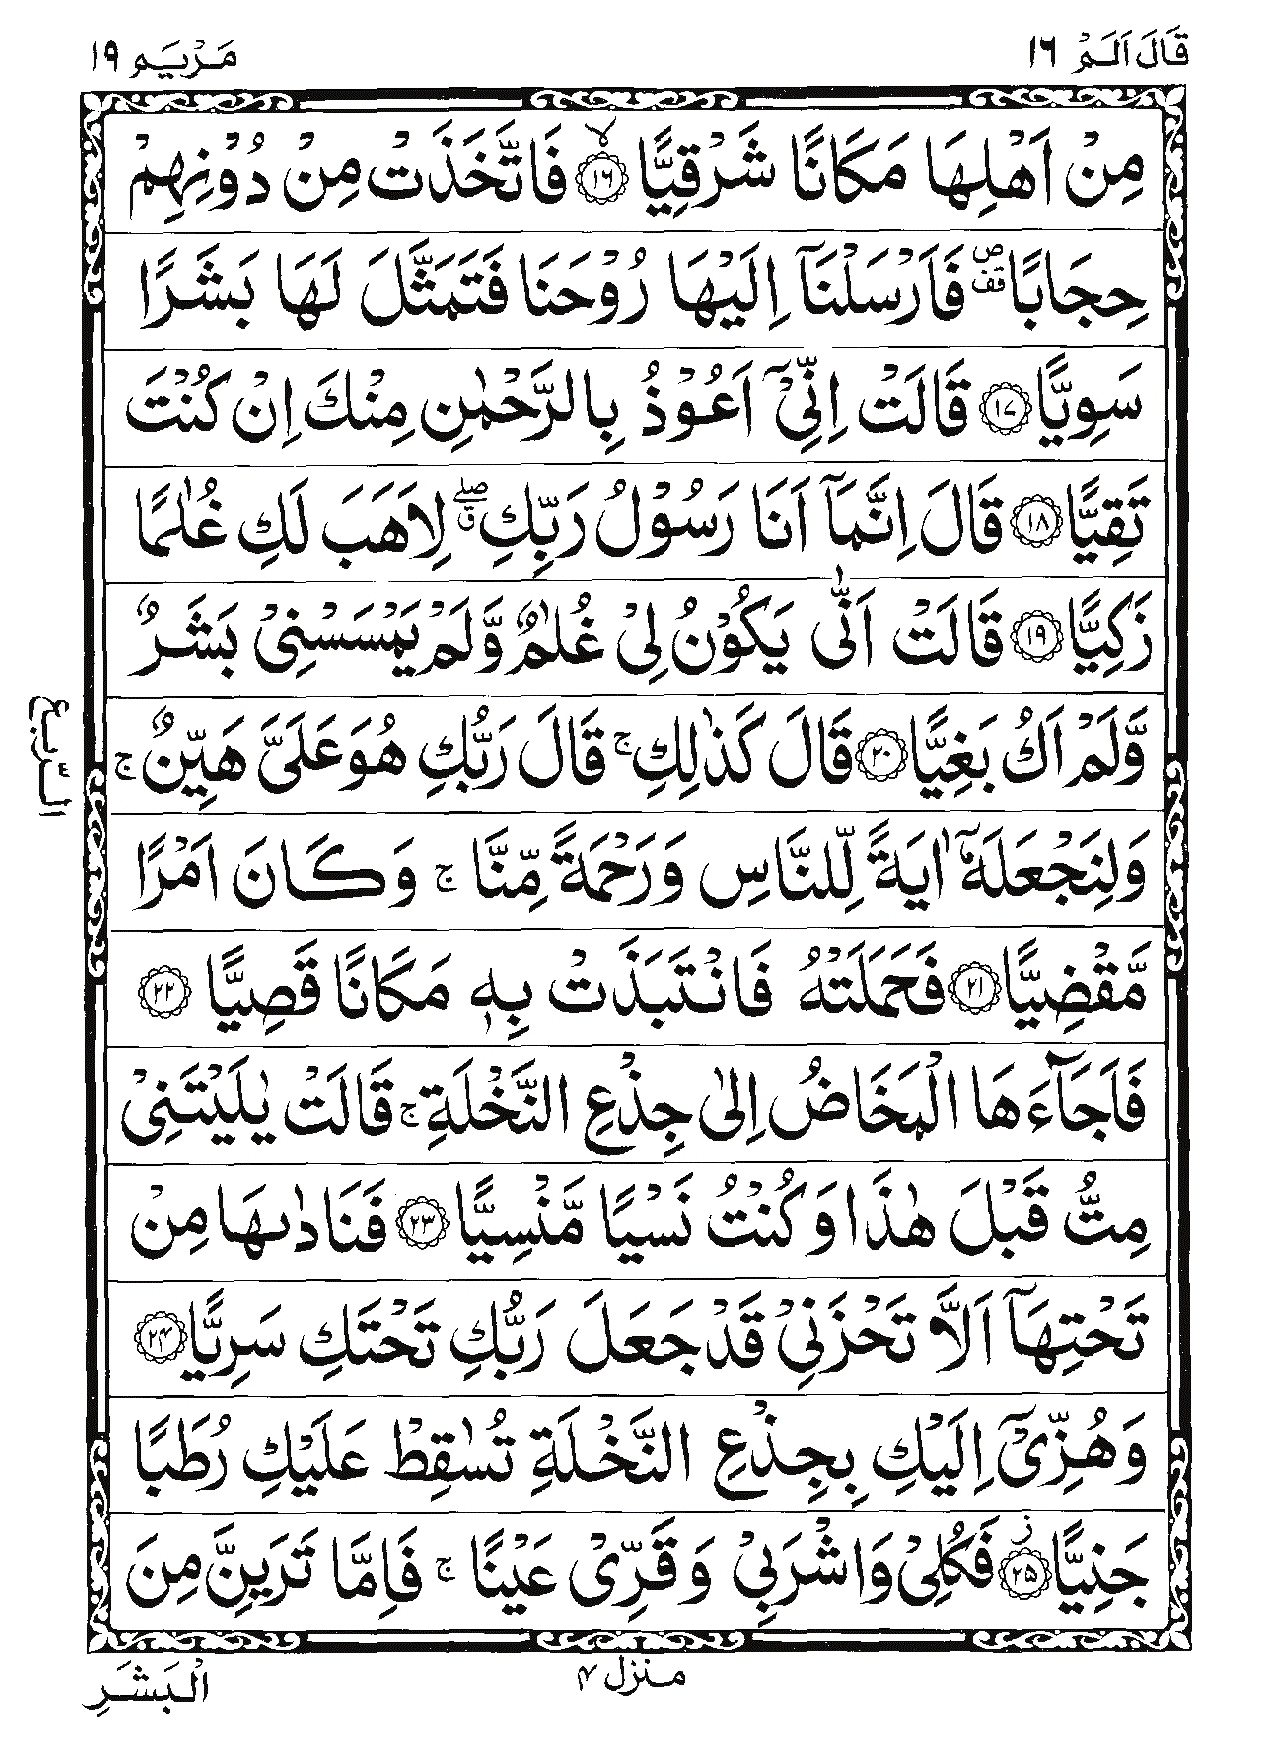 قَالَ اَلَمْ ١٦
مَرْيَم ١٩
مِنْ اَهْلِهَا مَكَانًا شَرْقِيًّا ۙ﴿١٦﴾ فَاتَّخَذَتْ مِنْ دُوْنِهِمْ
حِجَابًا ۪۫ فَاَرْسَلْنَاۤ اِلَيْهَا رُوْحَنَا فَتَمَثَّلَ لَهَا بَشَرًا
سَوِيًّا ﴿١٧﴾ قَالَتْ اِنِّيْۤ اَعُوْذُ بِالرَّحْمٰنِ مِنْكَ اِنْ كُنْتَ
تَقِيًّا ﴿١٨﴾ قَالَ اِنَّمَاۤ اَنَا رَسُوْلُ رَبِّكِ ۖق لِاَهَبَ لَكِ غُلٰمًا
زَكِيًّا ﴿١٩﴾ قَالَتْ اَنّٰى يَكُوْنُ لِيْ غُلٰمٌ وَّلَمْ يَمْسَسْنِيْ بَشَرٌ
وَّلَمْ اَكُ بَغِيًّا ﴿٢٠﴾ قَالَ كَذٰلِكِ ۚ قَالَ رَبُّكِ هُوَ عَلَيَّ هَيِّنٌ ۚ
وَلِنَجْعَلَهٗۤ اٰيَةً لِّلنَّاسِ وَرَحْمَةً مِّنَّا ۚ وَكَانَ اَمْرًا
مَّقْضِيًّا ﴿٢١﴾ فَحَمَلَتْهُ فَانْتَبَذَتْ بِهٖ مَكَانًا قَصِيًّا ﴿٢٢﴾
فَاَجَآءَهَا الْمَخَاضُ اِلٰى جِذْعِ النَّخْلَةِ ۚ قَالَتْ يٰلَيْتَنِيْ
مِتُّ قَبْلَ هٰذَا وَكُنْتُ نَسْيًا مَّنْسِيًّا ﴿٢٣﴾ فَنَادٰىهَا مِنْ
تَحْتِهَاۤ اَلَّا تَحْزَنِيْ قَدْ جَعَلَ رَبُّكِ تَحْتَكِ سَرِيًّا ﴿٢٤﴾
وَهُزِّيْۤ اِلَيْكِ بِجِذْعِ النَّخْلَةِ تُسٰقِطْ عَلَيْكِ رُطَبًا
جَنِيًّا ز﴿٢٥﴾ فَكُلِيْ وَاشْرَبِيْ وَقَرِّيْ عَيْنًا ۚ فَاِمَّا تَرَيِنَّ مِنَ
الرّبع
منزل ۴
الْبَشَرِ